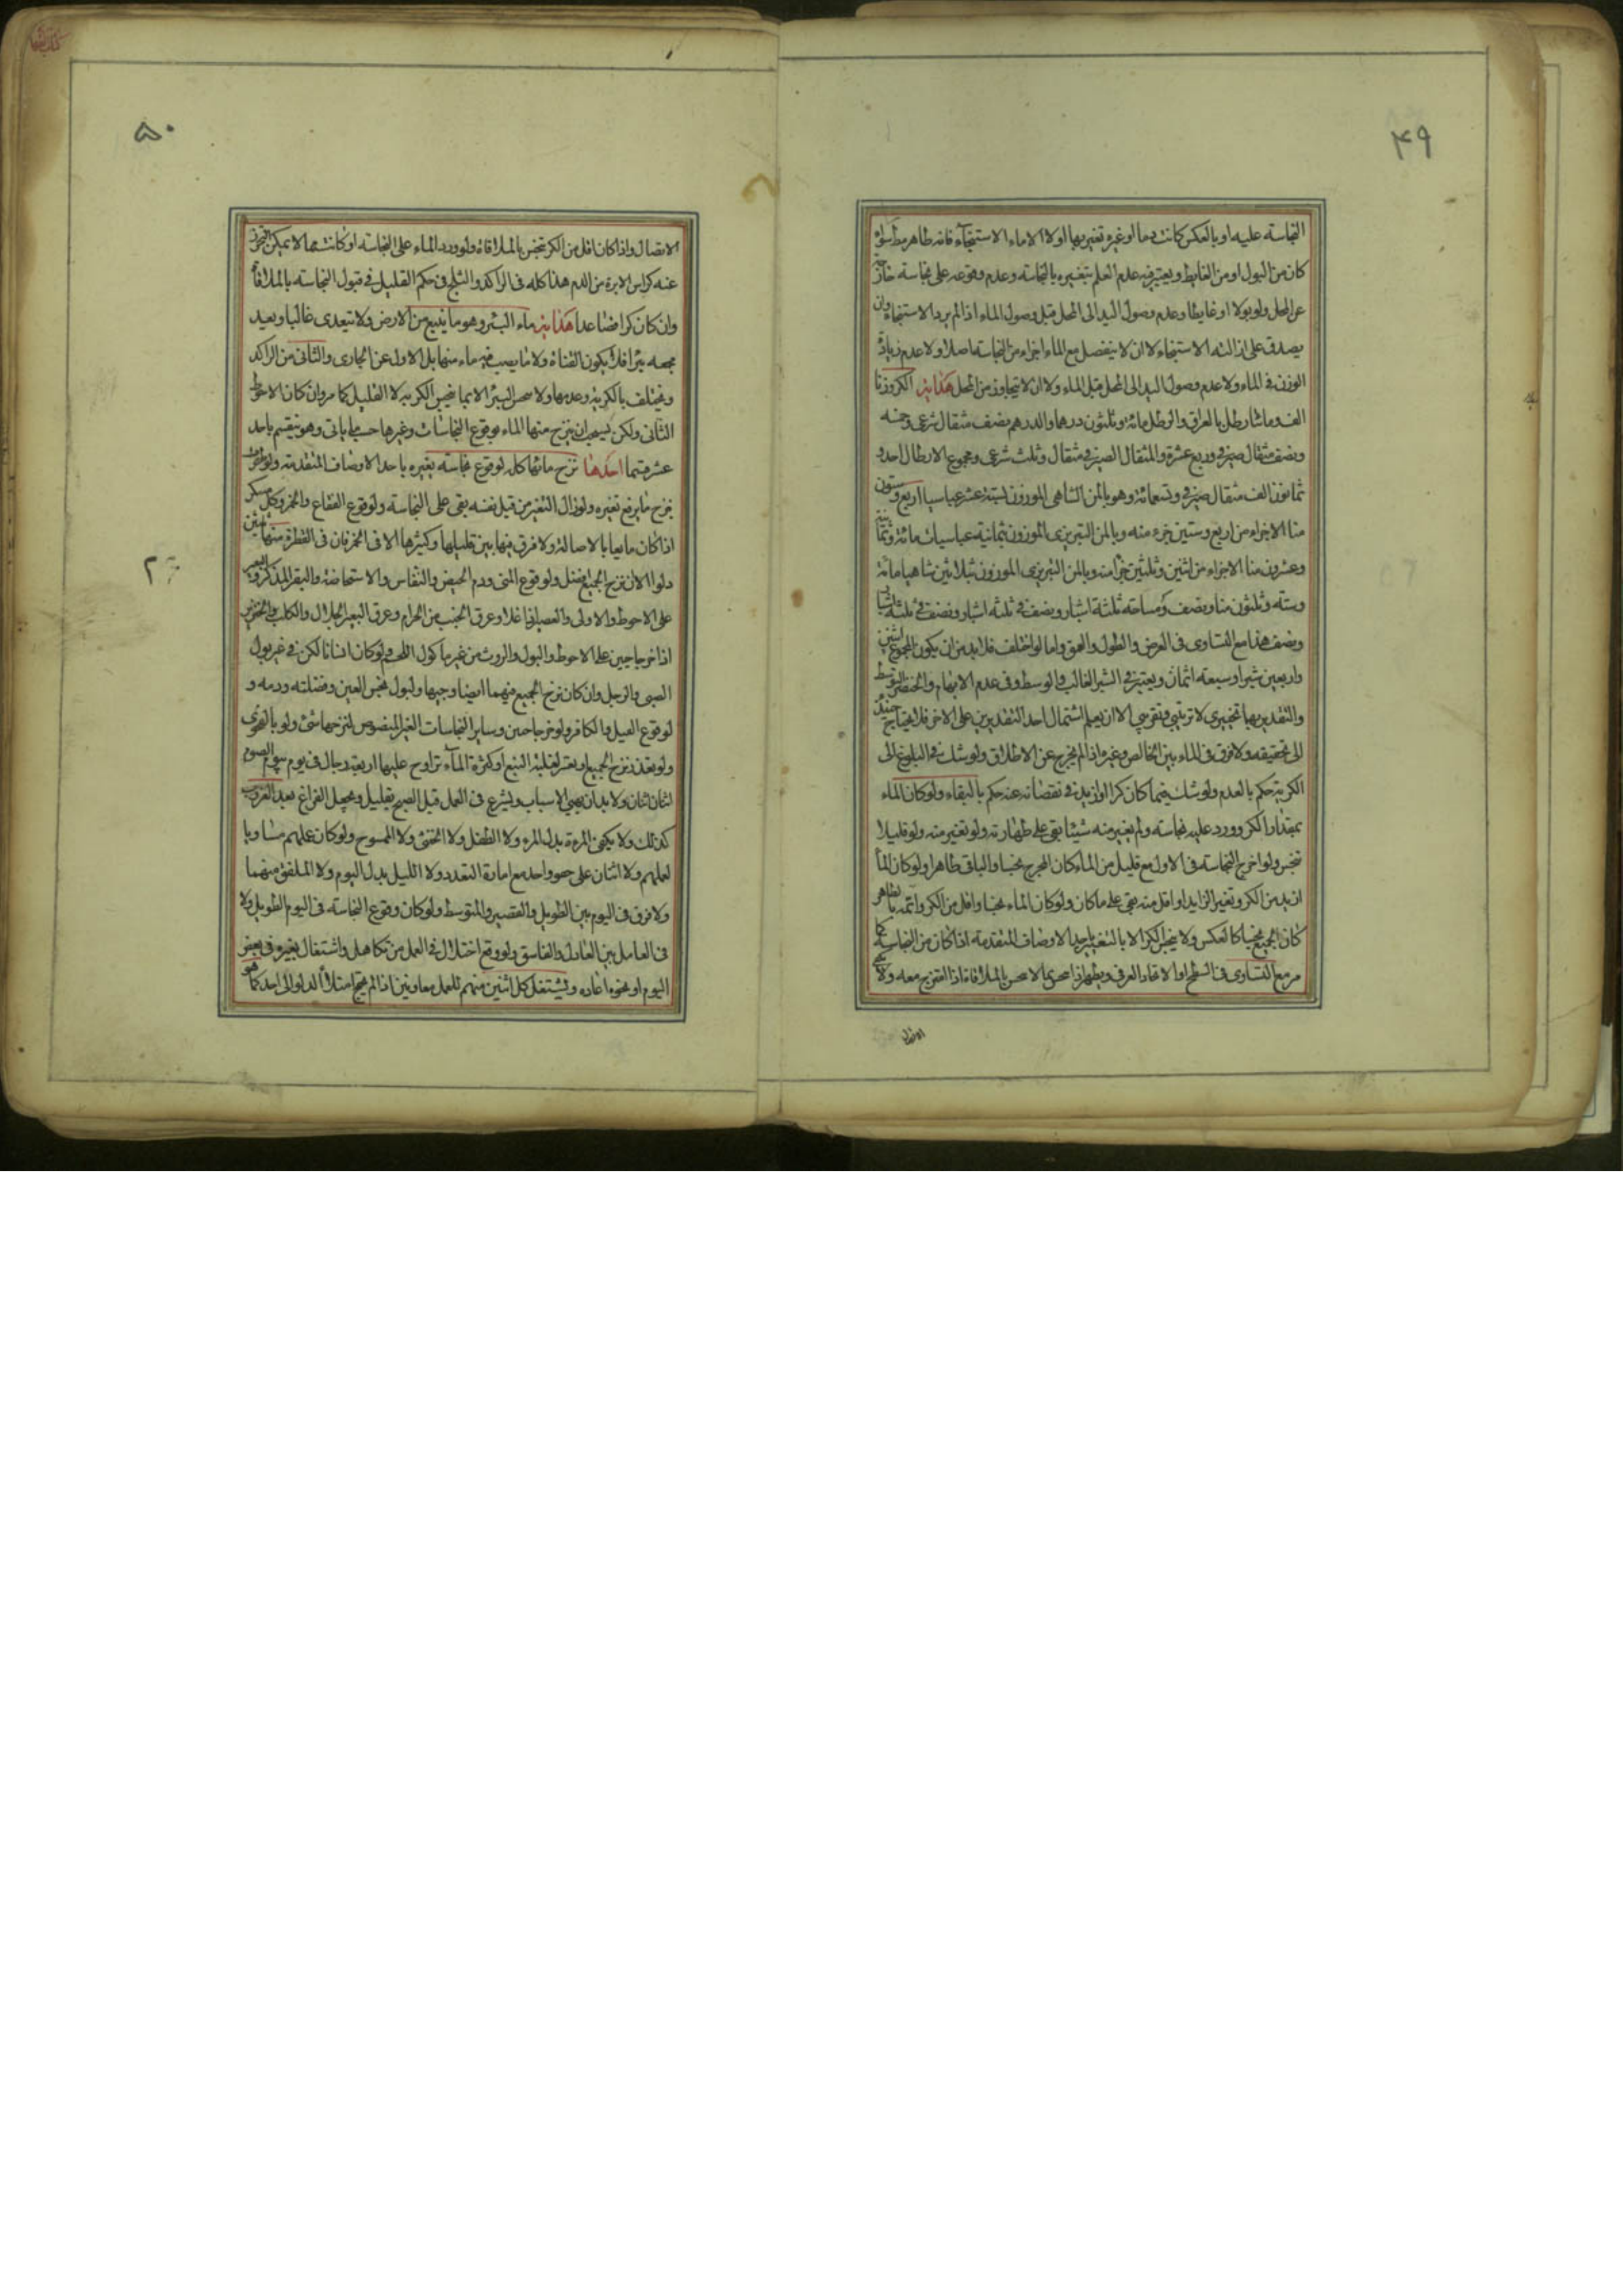 ۴۹
النجاسته عليه او بالعكس كانت دما او غيره تغير بها اولا الا ماء الاستنجاء فانه طاهر مط سواء
كان من البول او من الغايط ويعتبر فيه عدم العلم بتغيره بالنجاسته وعدم وقوعه على نجاسته خارجة
عن المحل ولو بولا او غايطا وعدم وصول اليد الى المحل قبل وصول الماء اذا لم يرد الاستنجاء وان
يصدق على ازالته الاستنجاء لا ان لا ينفصل مع الماء اجزاء من النجاسته اصلا ولا عدم زيادة
الوزن في الماء ولا عدم وصول اليد الى المحل قبل الماء ولا ان لا يتجاوز من المحل هداية الكر وزنا
الف ومائتا رطل بالعراقي والرطل مائة وثلثون درهما والدرهم نصف مثقال شرعي وخمسه
ونصف مثقال صيرفي وربع عشرة والمثقال الصيرفي مثقال وثلث شرعي ومجموع الارطال احد و
ثمانون الف مثقال صيرفي وتسعمائة وهو بالمن الشاهي الموزون بستة عشر عباسيا اربع وستون
منا الا جزاء من اربع وستين جزء منه وبالمن التبريزي الموزون بثمانية عباسيات مائة وثمانية
وعشرون منا الا جزاء من اثنين وثلثين جزأ منه وبالمن التبريزي الموزون بثلاثين شاهيا مائة
وستة وثلثون منا ونصف ومساحته ثلثة اشبار ونصف في ثلثه اشبار ونصف في ثلثه اشبار
ونصف هذا مع التساوي في العرض والطول والعمق واما لو اختلف فلا بد من ان يكون المجموع اثنين
واربعين شبرا وسبعة اثمان ويعتبر في الشبر الغالب في الوسط وفي عدم الابهام والخنصر المتوسط
والتقدير بهما تخييري لا ترتيبي وتقريبي الا ان يعلم اشتمال احد التقديرين على الاخر فلا يحتاج حينئذ
الى تحقيقه ولا فرق في الماء بين الخالص وغيره اذا لم يخرج عن الاطلاق ولو شك في البلوغ الى
الكرية حكم بالعدم ولو شك فيما كان كرا او ازيد في نقصانه عنه حكم بالبقاء ولو كان الماء
بمقدار الكر وورد عليه نجاسته ولم يغير منه شيئا بقي على طهارته ولو تغير منه ولو قليلا
تنجس ولو اخرج النجاسته في الاول مع قليل من الماء كان المخرج نجسا والباقي طاهرا ولو كان الماء
ازيد من الكر وتغير الزايد او اقل منه بقي على ما كان ولو كان الماء نجسا واقل من الكر واتمه بطاهر
كان الجميع نجسا كالعكس ولا ينجس الكر الا بالتغير باحد الاوصاف المتقدمة اذا كان من النجاسة كما
مر مع التساوي في السطح او الاتحاد العرفي ويطهر اذا امتزج معه ولا
۵۰
الاتصال واذا كان اقل من الكر تنجس بالملاقاة ولو ورد الماء على النجاسته او كانت مما لا يمكن التحرز
عنه كراس الابرة من الدم هذا كله في الراكد والثلج في حكم القليل في قبول النجاسته بالملاقاة
وان كان كرا فصاعدا هداية ماء البئر وهو ما ينبع من الارض ولا يتعدى غالبا ويعيد
مجعه بئرا فلا يكون القناة ولا ما يصب فيه ماء منها بل الاول عن الجاري والثاني من الراكد
ويختلف بالكرية وعدمها ولا ينجس البئر الا بما ينجس الكرية لا القليل كما مر وان كان الاحوط
الثاني ولكن يستحب ان ينزح منها الماء بوقوع النجاسات وغيرها حسبما ياتي وهو ينقسم باحد
عشر قسما احدها نزح مائها كله لوقوع نجاسته يغيره باحد الاوصاف المتقدمة
ينزح ما يرفع تغيره ولو زال التغير من قبل نفسه بقي على النجاسته ولوقوع الفقاع والخمر وكل مسكر
اذا كان مايعا بالاصالة ولا فرق فيها بين قليلها وكثيرها الا في الخمر فان في القطرة منها عشرين
دلوا الا ان نزح الجميع افضل ولوقوع المني ودم الحيض والنفاس والاستحاضة والبقر المذكر والبعير
على الاحوط والاولى والعصير اذا غلا وعرق الجنب من الحرام وعرق البعير الجلال والكلب والخنزير
اذا خرجا حيين على الاحوط والبول والروث من غير ماكول اللحم ولو كان انسانا لكن في غير بول
الصبي والرجل وان كان نزح الجميع منهما ايضا وجيها ولبول نجس العين وفضلته ودمه و
لوقوع الفيل والكافر ولو خرجا حيين وساير النجاسات الغير المنصوص لنزحها شئ ولو بالفحوى
ولو تعذر نزح الجميع ويعتبر لغلبة النبع او كثرة الماء تراوح عليها اربعة رجال في يوم الصوم
اثنان اثنان ولا بد ان يهيئ الاسباب ويشرع في العمل قبل الصبح بقليل ويحصل الفراغ بعد الغروب
كذلك ولا يكفي المرءة بدل المرء ولا الطفل ولا الخنثى ولا الممسوح ولو كان عملهم مساويا
لعملهم ولا اثنان على واحد مع امارة التعدد ولا الليل بدل اليوم ولا الملفق منهما
ولا فرق في اليوم بين الطويل والقصير والمتوسط ولو كان وقوع النجاسته في اليوم الطويل ولا
في العامل بين العادل والفاسق ولو وقع اختلال في العمل من تكاهل واشتغال بغيره في بعض
اليوم او نحوه اعاده ويشتغل كل اثنين منهم للعمل معاونين اذا لم يحتج امتلاء الدلو الى احد كما هو